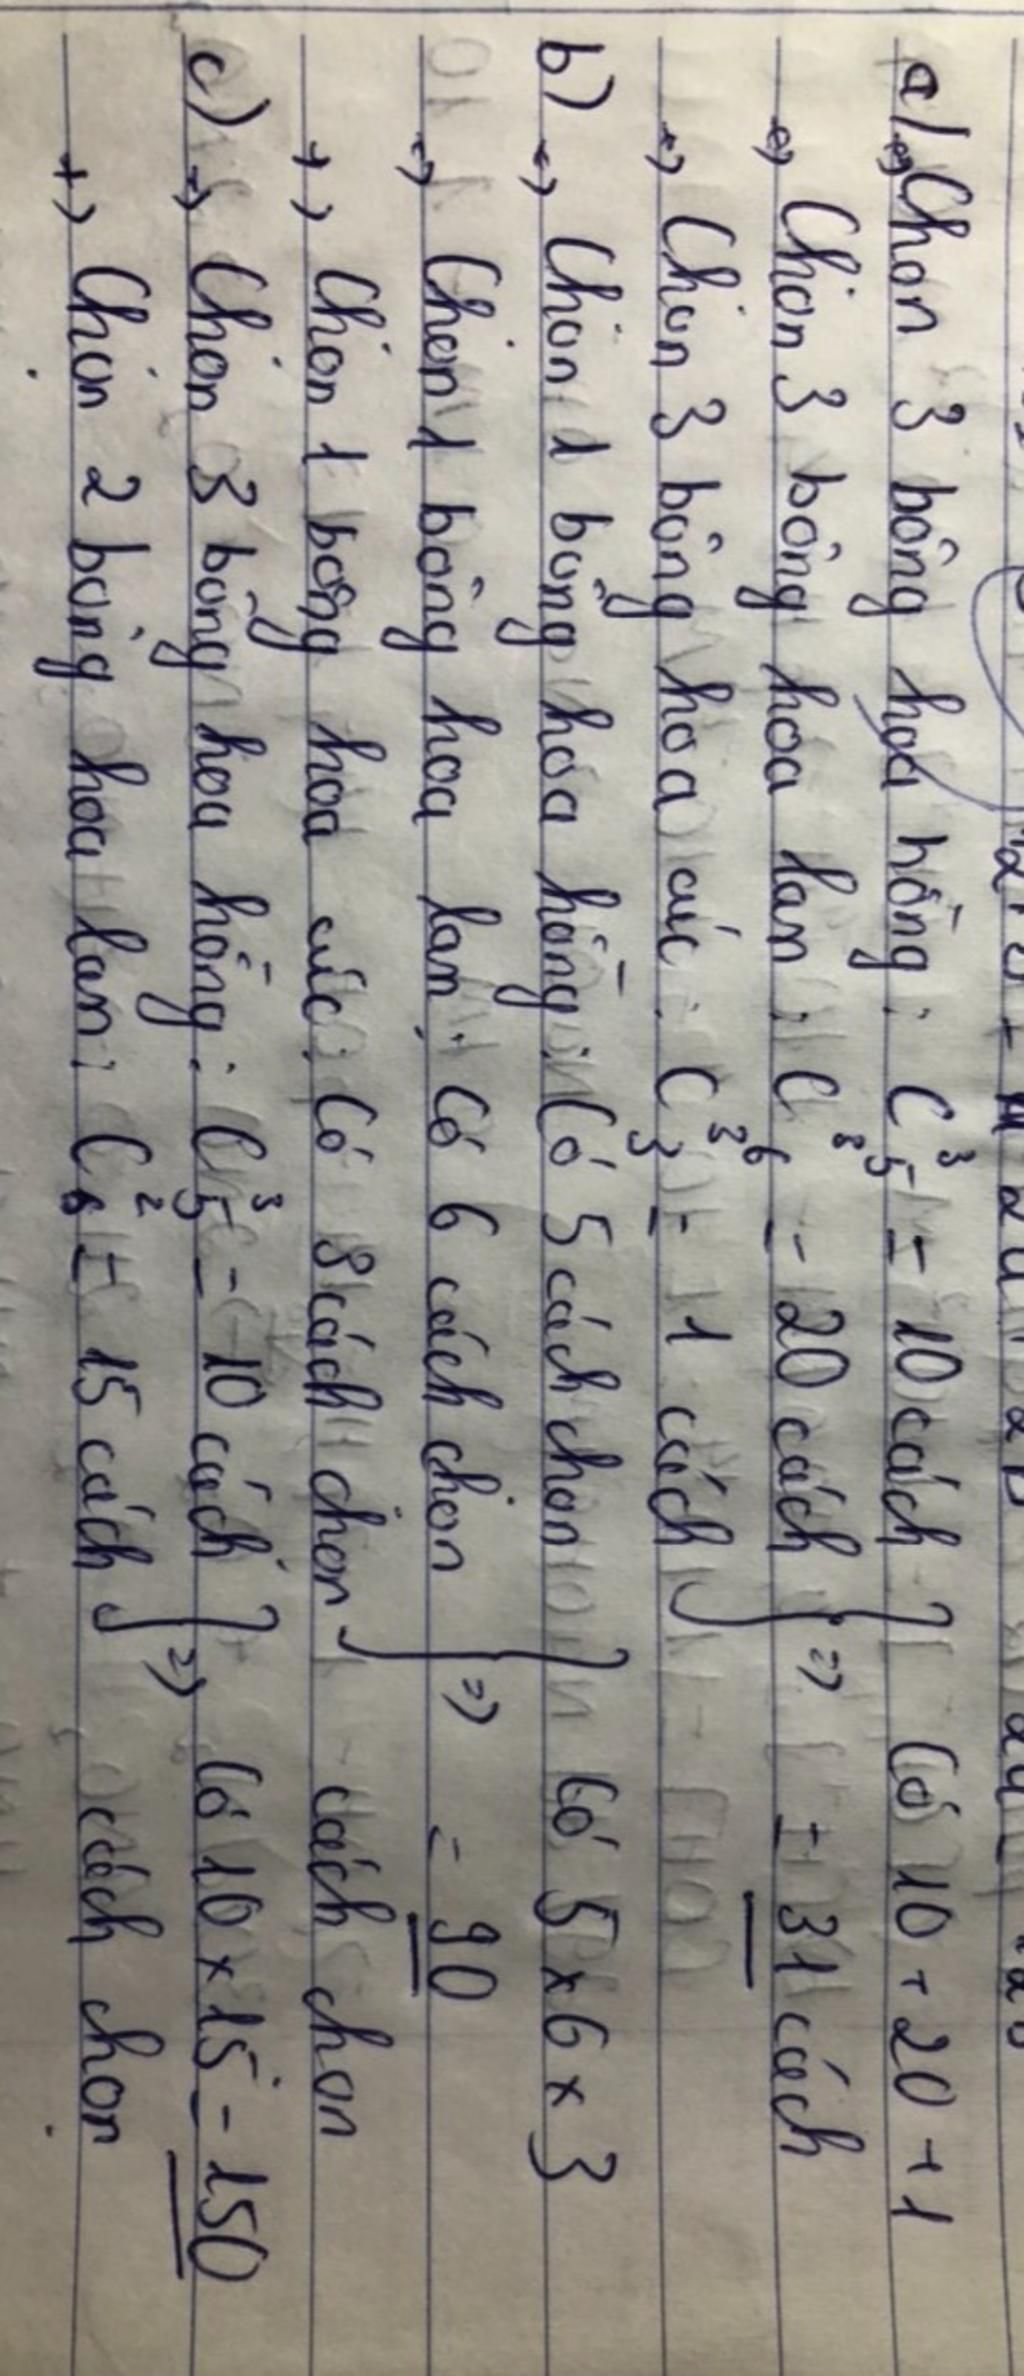 a) +) Chọn 3 bông hoa hồng: C³₅ = 10 cách
+) Chọn 3 bông hoa lan: C³₆ = 20 cách
+) Chọn 3 bông hoa cúc: C³₃ = 1 cách
=> Có 10 + 20 + 1
= 31 cách
b) +) Chọn 1 bông hoa hồng: Có 5 cách chọn
+) Chọn 1 bông hoa lan: Có 6 cách chọn
+) Chọn 1 bông hoa cúc: Có 3 cách chọn
=> Có 5 x 6 x 3
= 90
cách chọn
c) +) Chọn 3 bông hoa hồng: C³₅ = 10 cách
+) Chọn 2 bông hoa lan: C²₆ = 15 cách
=> Có 10 x 15 = 150
cách chọn